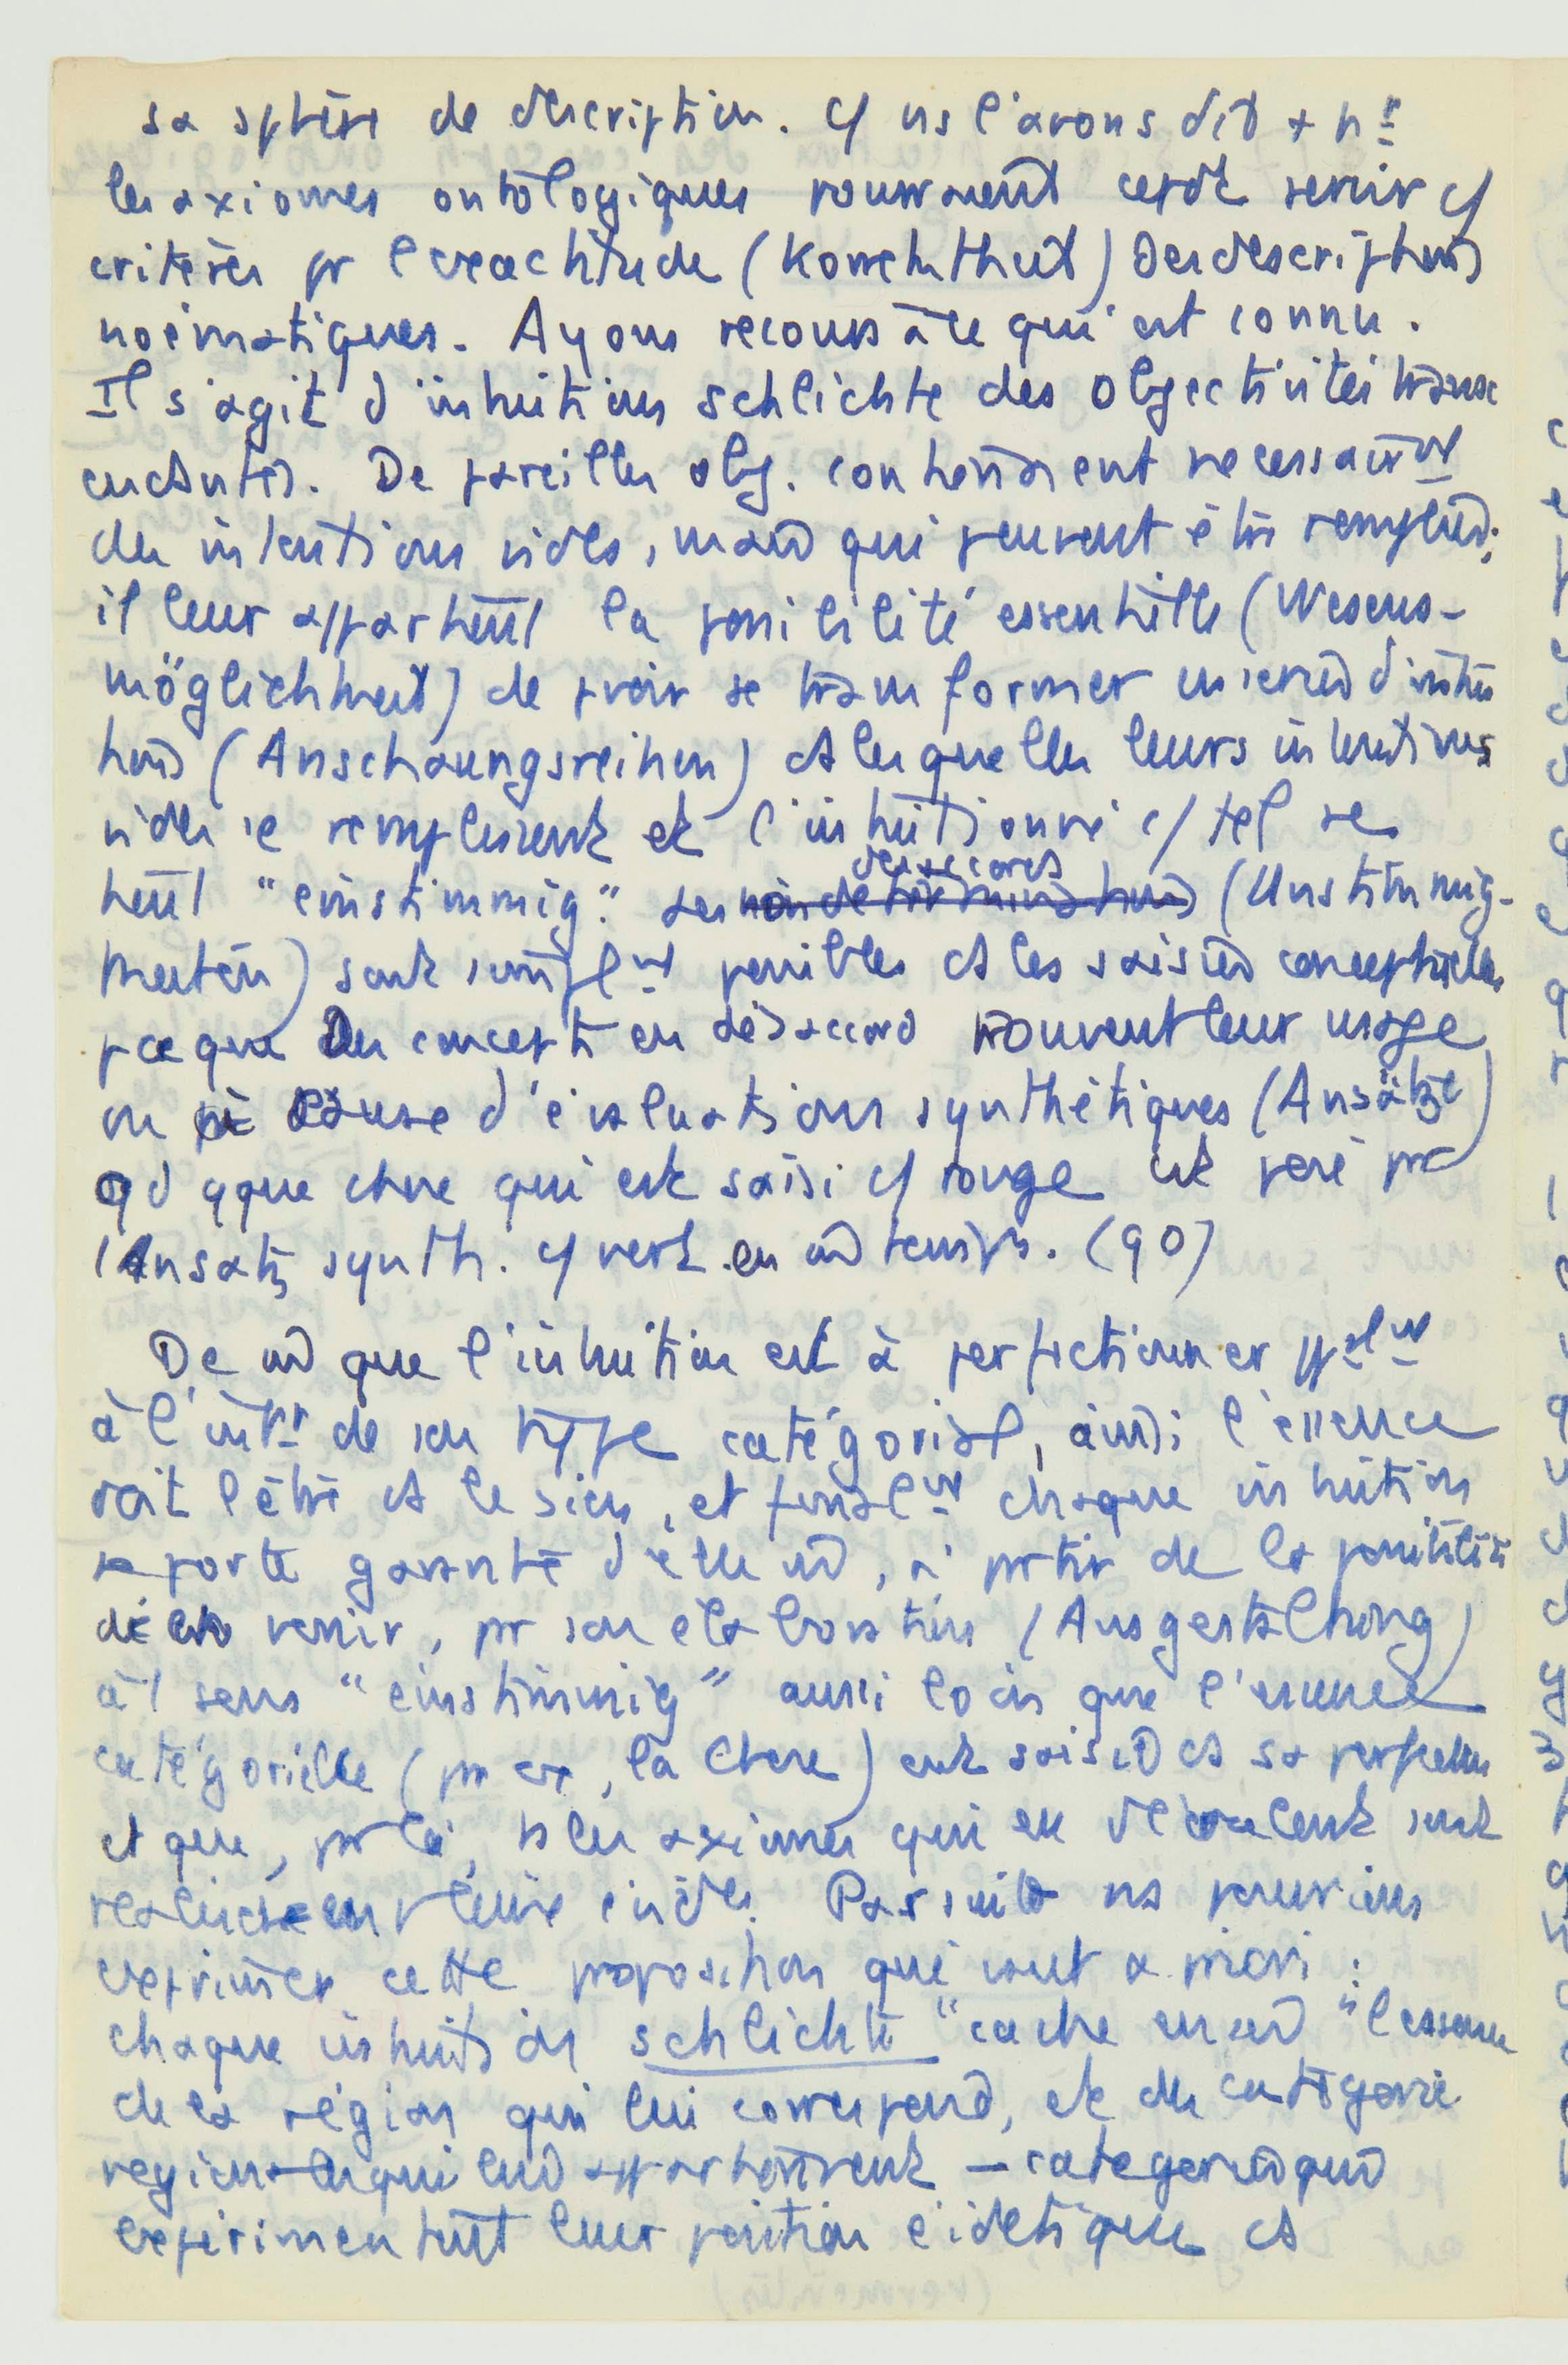 sa sphère de description. c/ ns l'avons dit + ht
les axiomes ontologiques pourraient cepdt servir c/
critères pr l'exactitude (Korrektheit) des descriptions
noématiques. Ayons recours à ce qui est connu.
Il s'agit d'intuitions schlichte des objectivités trans
cendantes. De pareilles obj. contiennent nécessairmt
des intentions vides, mais qui peuvent être remplies;
il leur appartient la possibilité essentielle (Wesens-
möglichkeit) de pvoir se transformer en séries d'intui
tions (Anschauungsreihen) ds lesquelles leurs intentions
vides se remplissent et l'intuitionné c/ tel se
tient "einstimmig". des désaccords (Unstimmig-
keiten) sont simplmt possibles ds les saisies conceptuelles
pceque des concepts en désaccord trouvent leur usage
ou à cause d'évaluations synthétiques (Ansätze)
qd qque chose qui est saisi c/ rouge est posé par
l'Ansatz synth. c/ vert en m̂ temps. (90)
De m̂ que l'intuition est à perfectionner
à l'intr de son type catégorial, ainsi l'essence
doit l'être ds le sien, et finalmt chaque intuition
se porte garante d'elle m̂, à partir de la possibilité
de venir, pr son élaboration (Ausgestaltung)
à 1 sens "einstimmig" aussi loin que l'essence
catégorielle (pr ex, la Chose) est saisie ds sa perfection
et que, pr là, ts les axiomes qui en découlent sont
réalisés en pleine évidce. Par suite ns pouvions
exprimer cette proposition qui vaut a priori :
chaque intuition schlichte "cache en soi" l'essence
de la région qui lui correspond, et des catégories
régionales qui lui appartiennent – catégories qui
expérimentent leur position eidétique ds